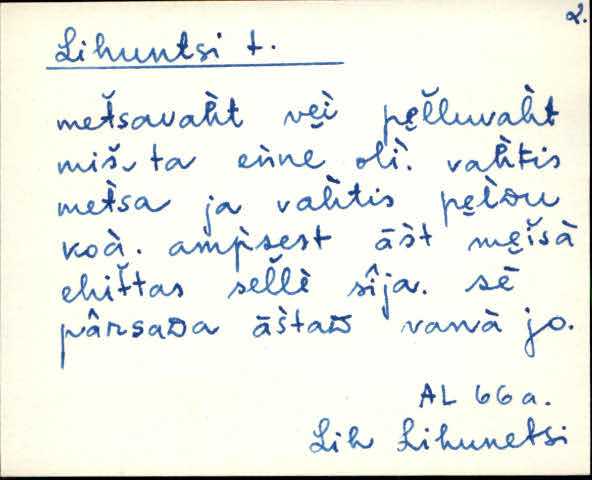 2.
Lihuntsi t.
metsavaht̀ vei̬ pe̬l̆luvaht̀
miš, ta eǹne oli̇̀. vaht̀is
met̀sa ja vaht̀is pe̬l̀ᴅu
koà. amp̀sest āšt̀ me̬i̬šà
ehit̆tas sel̆lè sîja. sē
pârsaᴅa āšt̀aᴅ vanà jo.
AL 66 a.
Lih Lihunetsi